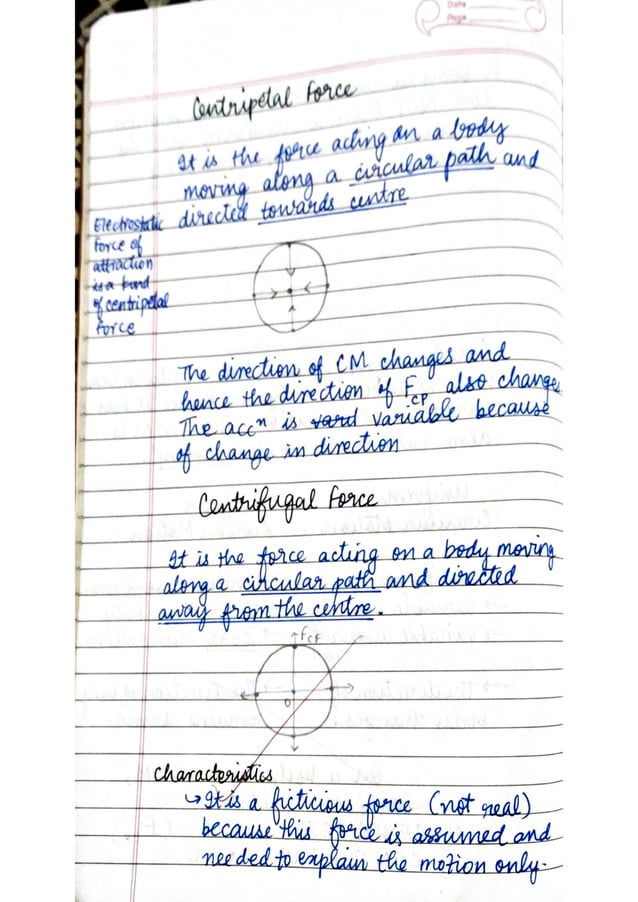 Date
Page
Centripetal Force
It is the force acting on a body
moving along a circular path and
directed towards centre
Electrostatic
force of
attraction
is a kind
of centripetal
force
The direction of CM changes and
hence the direction of FCP also change.
The accn is variable because
of change in direction
Centrifugal Force
It is the force acting on a body moving
along a circular path and directed
away from the centre.
FCF
O
Characteristics
↳ It is a ficticious force (not real)
because this force is assumed and
needed to explain the motion only.